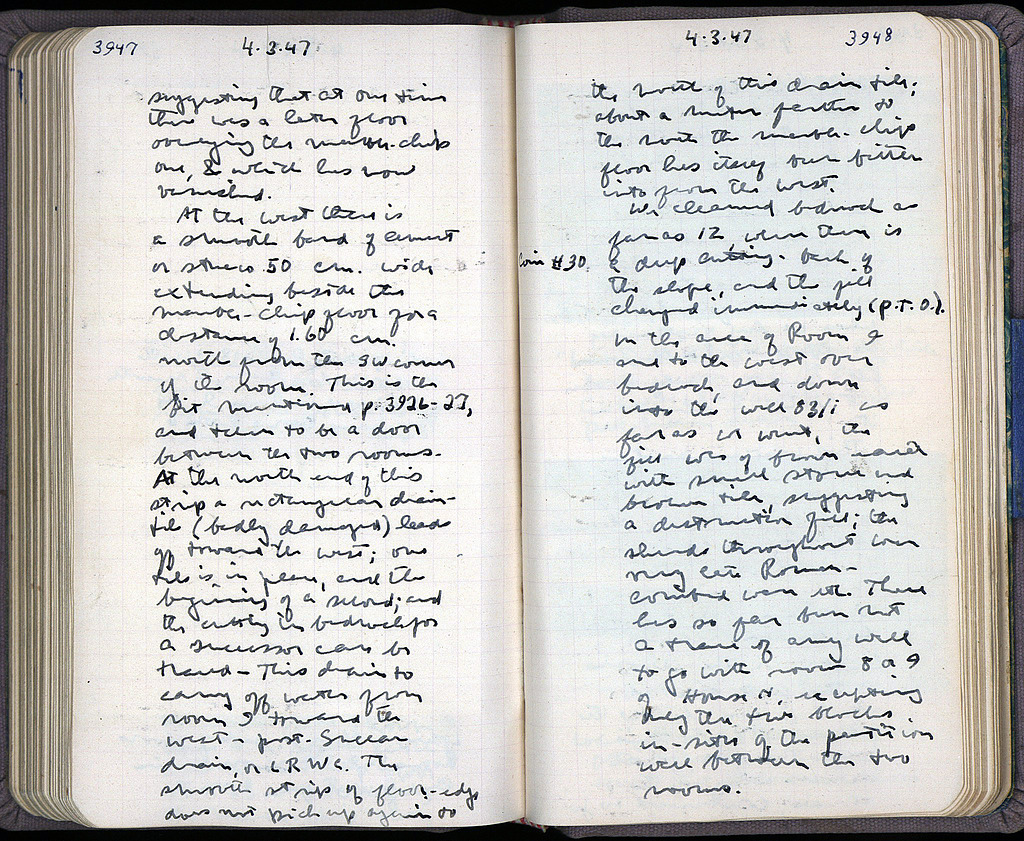 3947
4.3.47
suggesting that at one time
there was a later floor
overlying the marble-chip
one, & which has now
vanished.
At the west there is
a smooth band of cement
or stucco 50 cm. wide
extending beside the
marble-chip floor for a
distance of 1.60 cm.
north from the SW corner
of the room. This is the
bit mentioned p. 3926-27,
and seem to be a door
between the two rooms.
At the north end of this
strip a rectangular drain-
tile (badly damaged) leads
off toward the west; one
tile is in place, and the
beginning of a second; and
the cutting in bedrock for
a successor can be
traced - This drain to
carry off water from
room 9 toward the
west - post-Sullan
drain, or LR We. The
smooth strip of floor-edge
does not pick up again to
4.3.47
3948
the north of this drain tile;
about a meter farther to
the north the marble-chip
floor has itself been bitten
into from the west.
We cleaned bedrock as
far as 12, where there is
Coin #30.
a deep cutting. back of
the slope, and the fill
changed immediately (P.T.O.).
In the area of Room 9
and to the west over
bedrock, and down
into the well 83/1 as
far as we went, the
fill was of brown earth
with small stones and
broken tile, suggesting
a destruction fill; the
sherds throughout were
very late Roman -
combed ware etc. There
has so far been not
a trace of any wall
to go with room 8 or 9
of House H, excepting
only the two blocks
in-situ of the partition
wall between the two
rooms.